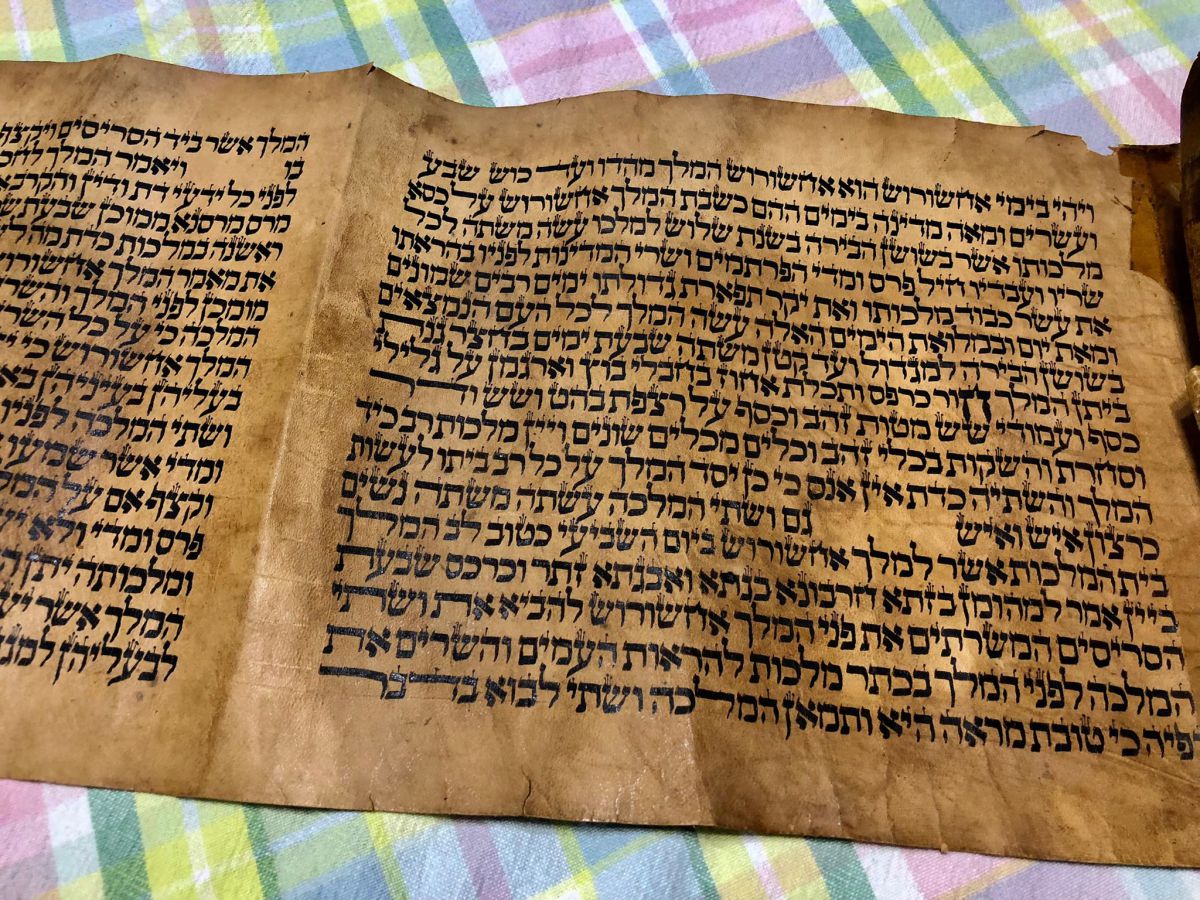 ויהי בימי אחשורוש הוא אחשורוש המלך מהדו ועד כוש שבע
ועשרים ומאה מדינה בימים ההם כשבת המלך אחשורוש על כסא
מלכותו אשר בשושן הבירה בשנת שלוש למלכו עשה משתה לכל
שריו ועבדיו חיל פרס ומדי הפרתמים ושרי המדינות לפניו בהראתו
את עשר כבוד מלכותו ואת יקר תפארת גדולתו ימים רבים שמונים
ומאת יום ובמלואת הימים האלה עשה המלך לכל העם הנמצאים
בשושן הבירה למגדול ועד קטן משתה שבעת ימים בחצר גנת
ביתן המלך חור כרפס ותכלת אחוז בחבלי בוץ וארגמן על גלילי
כסף ועמודי שש מטות זהב וכסף על רצפת בהט ושש ודר
וסחרת והשקות בכלי זהב וכלים מכלים שונים ויין מלכות רב כיד
המלך והשתיה כדת אין אנס כי כן יסד המלך על כל רב ביתו לעשות
כרצון איש ואיש גם ושתי המלכה עשתה משתה נשים
בית המלכות אשר למלך אחשורוש ביום השביעי כטוב לב המלך
ביין אמר למהומן בזתא חרבונא בגתא ואבגתא זתר וכרכס שבעת
הסריסים המשרתים את פני המלך אחשורוש להביא את ושתי
המלכה לפני המלך בכתר מלכות להראות העמים והשרים את
יפיה כי טובת מראה היא ותמאן המלכה ושתי לבוא בדבר
המלך אשר ביד הסריסים ויקצף
בו ויאמר המלך
לפני כל ידעי דת ודין
מרס מרסנא ממוכן שבעת
ראשנה במלכות כדת מה
את מאמר המלך אחשורוש
מומכן לפני המלך
המלכה כי על כל
המלך אחשורוש כי
בעליהן בעיניהן
ושתי המלכה לפניו
ומדי אשר שמעו
וקצף אם על
פרס ומדי ולא
ומלכותה יתן
המלך אשר
לבעליהן